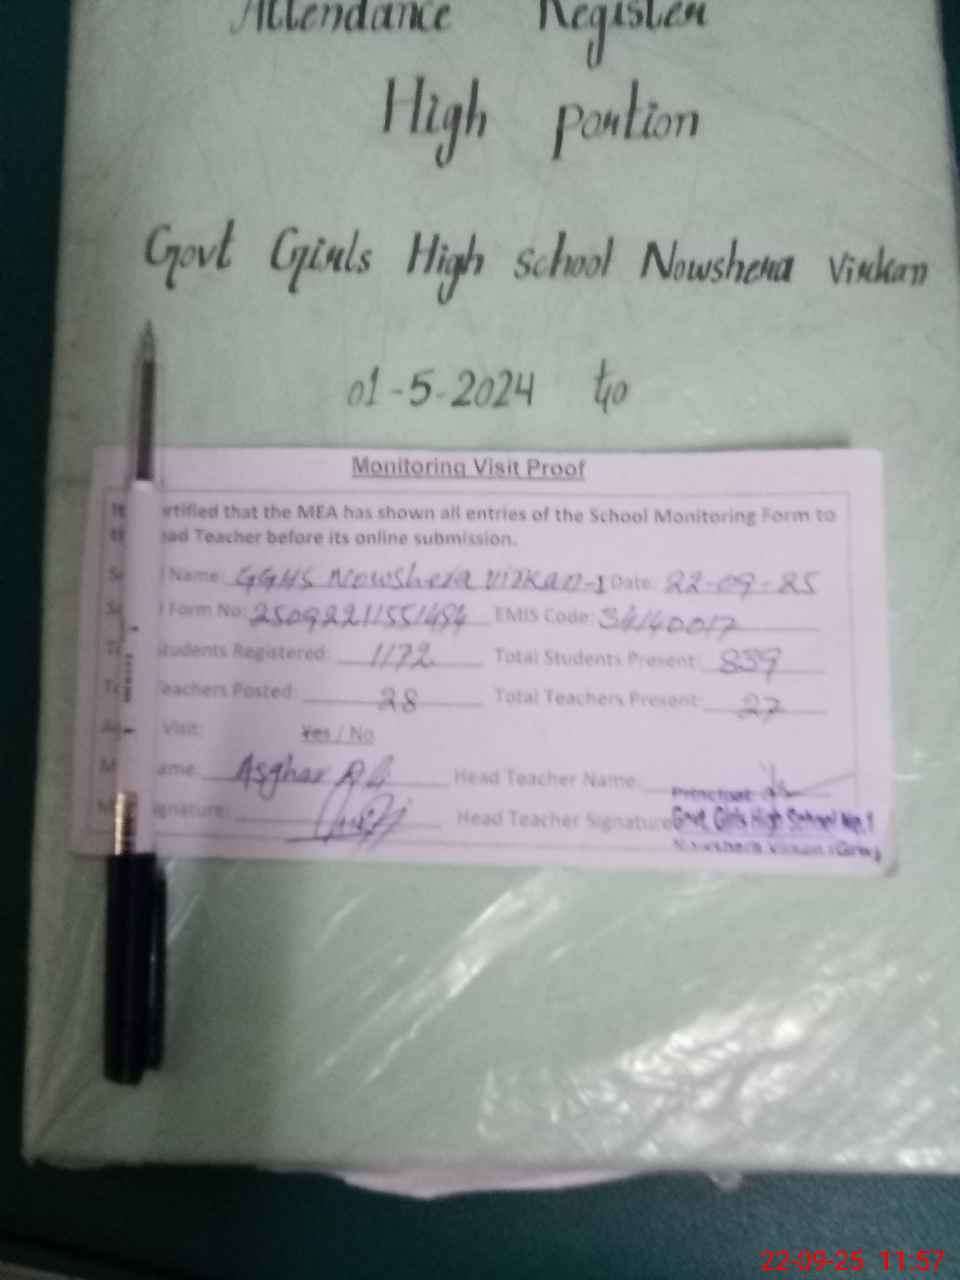 Attendance Register
High portion
Govt Girls High School Nowshera Virkan
01-5-2024 to
Monitoring Visit Proof
It rtified that the MEA has shown all entries of the School Monitoring Form to
ead Teacher before its online submission.
Name: GGHS Nowshera Virkan-1 Date: 22-09-25
Form No: 25092211551494 EMIS Code: 34140017
Students Registered: 1172 Total Students Present: 839
eachers Posted: 28 Total Teachers Present: 27
Visit: Yes / No
ame: Asghar Head Teacher Name:
gnature: Head Teacher Signature
Principal
Govt. Girls High School No.1
Nowshera Virkan (Grw)
22-09-25 11:57